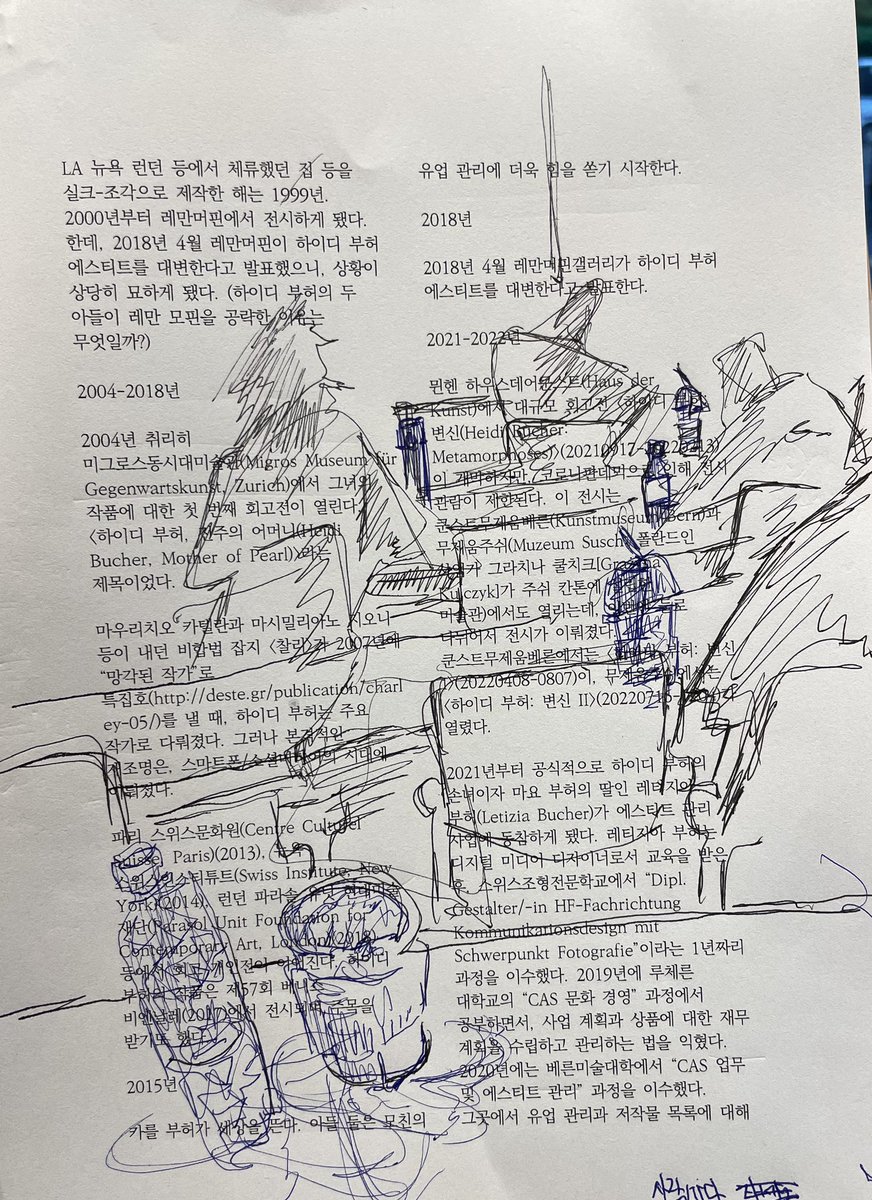 LA 뉴욕 런던 등에서 체류했던 집 등을
실크-조각으로 제작한 해는 1999년.
2000년부터 레만머핀에서 전시하게 됐다.
한데, 2018년 4월 레만머핀이 하이디 부허
에스티트를 대변한다고 발표했으니, 상황이
상당히 묘하게 됐다. (하이디 부허의 두
아들이 레만 모핀을 공략한 이유는
무엇일까?)
2004-2018년
2004년 취리히
미그로스동시대미술관(Migros Museum für
Gegenwartskunst, Zurich)에서 그녀의
작품에 대한 첫 번째 회고전이 열린다.
〈하이디 부허, 진주의 어머니(Heidi
Bucher, Mother of Pearl)〉라는
제목이었다.
마우리치오 카텔란과 마시밀리아노 지오니
등이 내던 비합법 잡지 〈찰리〉가 2007년에
“망각된 작가”로
특집호(http://deste.gr/publication/charl
ey-05/)를 낼 때, 하이디 부허는 주요
작가로 다뤄졌다. 그러나 본격적인
재조명은, 스마트폰/소셜미디어의 시대에
이뤄졌다.
파리 스위스문화원(Centre Culturel
Suisse, Paris)(2013), 뉴욕
스위스인스티튜트(Swiss Institute, New
York)(2014), 런던 파라솔 유닛 현대미술
재단(Parasol Unit Foundation for
Contemporary Art, London)(2018)
등에서 회고 개인전이 이어진다. 하이디
부허의 작품은 제57회 베니스
비엔날레(2017)에서 전시되며 주목을
받기도 했다.
2015년
카를 부허가 세상을 뜬다. 아들 둘은 모친의
유업 관리에 더욱 힘을 쏟기 시작한다.
2018년
2018년 4월 레만머핀갤러리가 하이디 부허
에스티트를 대변한다고 발표한다.
2021-2022년
뮌헨 하우스데어쿤스트(Haus der
Kunst)에서 대규모 회고전 〈하이디
변신(Heidi Bucher:
Metamorphoses)〉(20210917-20220213)
이 개막하지만, 코로나판데믹으로 인해 전시
관람이 제한된다. 이 전시는
쿤스트무제움베른(Kunstmuseum Bern)과
무제움주쉬(Muzeum Susch, 폴란드인
그라치나 쿨치크[Grażyna
Kulczyk]가 주쉬 칸톤에
미술관)에서도 열리는데,
나뉘어서 전시가 이뤄졌다.
쿤스트무제움베른에서는 부허: 변신
I〉(20220408-0807)이, 무제움주쉬에서는
〈하이디 부허: 변신 II〉
열렸다.
2021년부터 공식적으로 하이디 부허의
손녀이자 마요 부허의 딸인 레티지아
부허(Letizia Bucher)가 에스티트 관리
사업에 동참하게 됐다. 레티지아 부허는
디지털 미디어 디자이너로서 교육을 받은
후, 스위스조형전문학교에서 “Dipl.
Gestalter/-in HF-Fachrichtung
Kommunikationsdesign mit
Schwerpunkt Fotografie”이라는 1년짜리
과정을 이수했다. 2019년에 루체른
대학교의 “CAS 문화 경영” 과정에서
공부하면서, 사업 계획과 상품에 대한 재무
계획을 수립하고 관리하는 법을 익혔다.
2020년에는 베른미술대학에서 “CAS 업무
및 에스티트 관리” 과정을 이수했다.
그곳에서 유업 관리과 저작물 목록에 대해